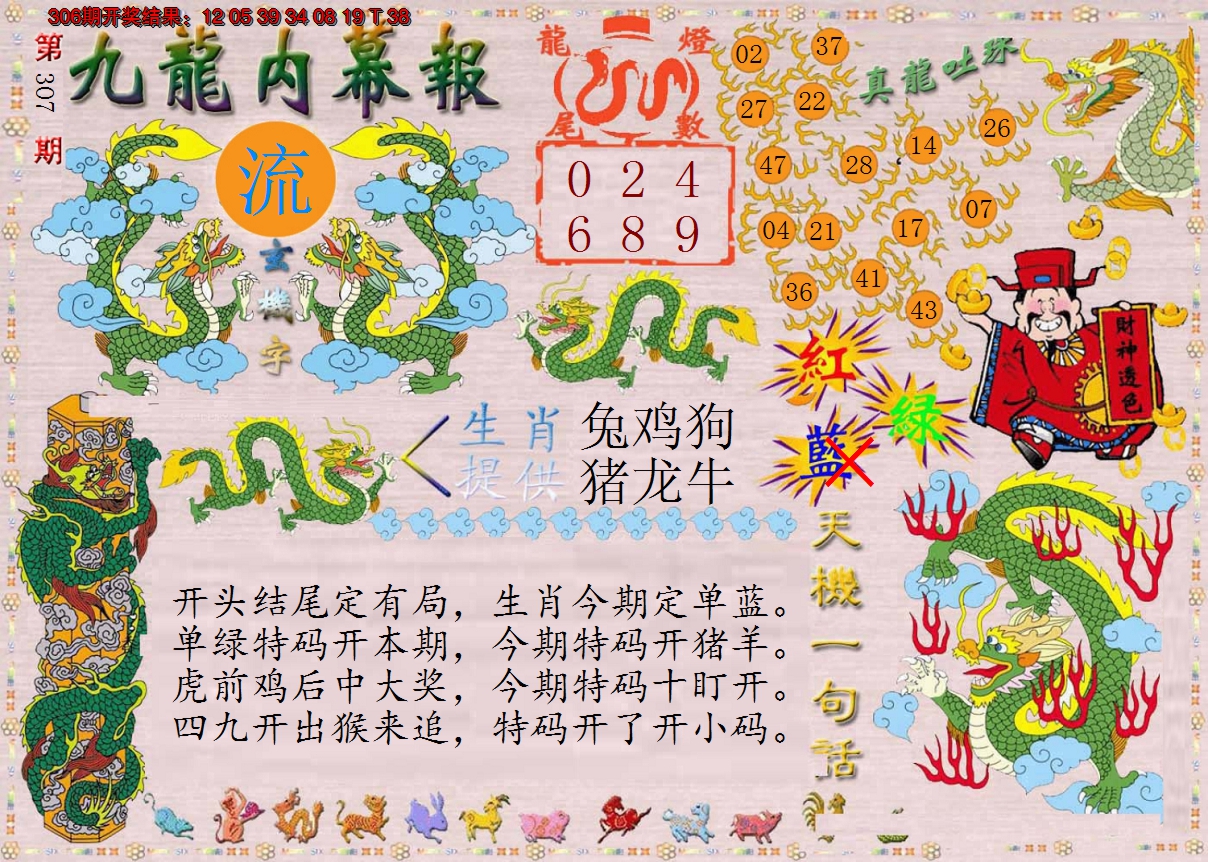 306期开奖结果：12 05 39 34 08 19 T 38
第307期
九龍内幕報
龍燈尾數
0 2 4
6 8 9
真龍吐珠
02
37
27
22
47
28
14
26
04
21
17
07
36
41
43
流
玄機字
財神透色
紅
绿
藍
生肖提供
兔鸡狗
猪龙牛
天機一句话
开头结尾定有局，生肖今期定单蓝。
单绿特码开本期，今期特码开猪羊。
虎前鸡后中大奖，今期特码十盯开。
四九开出猴来追，特码开了开小码。